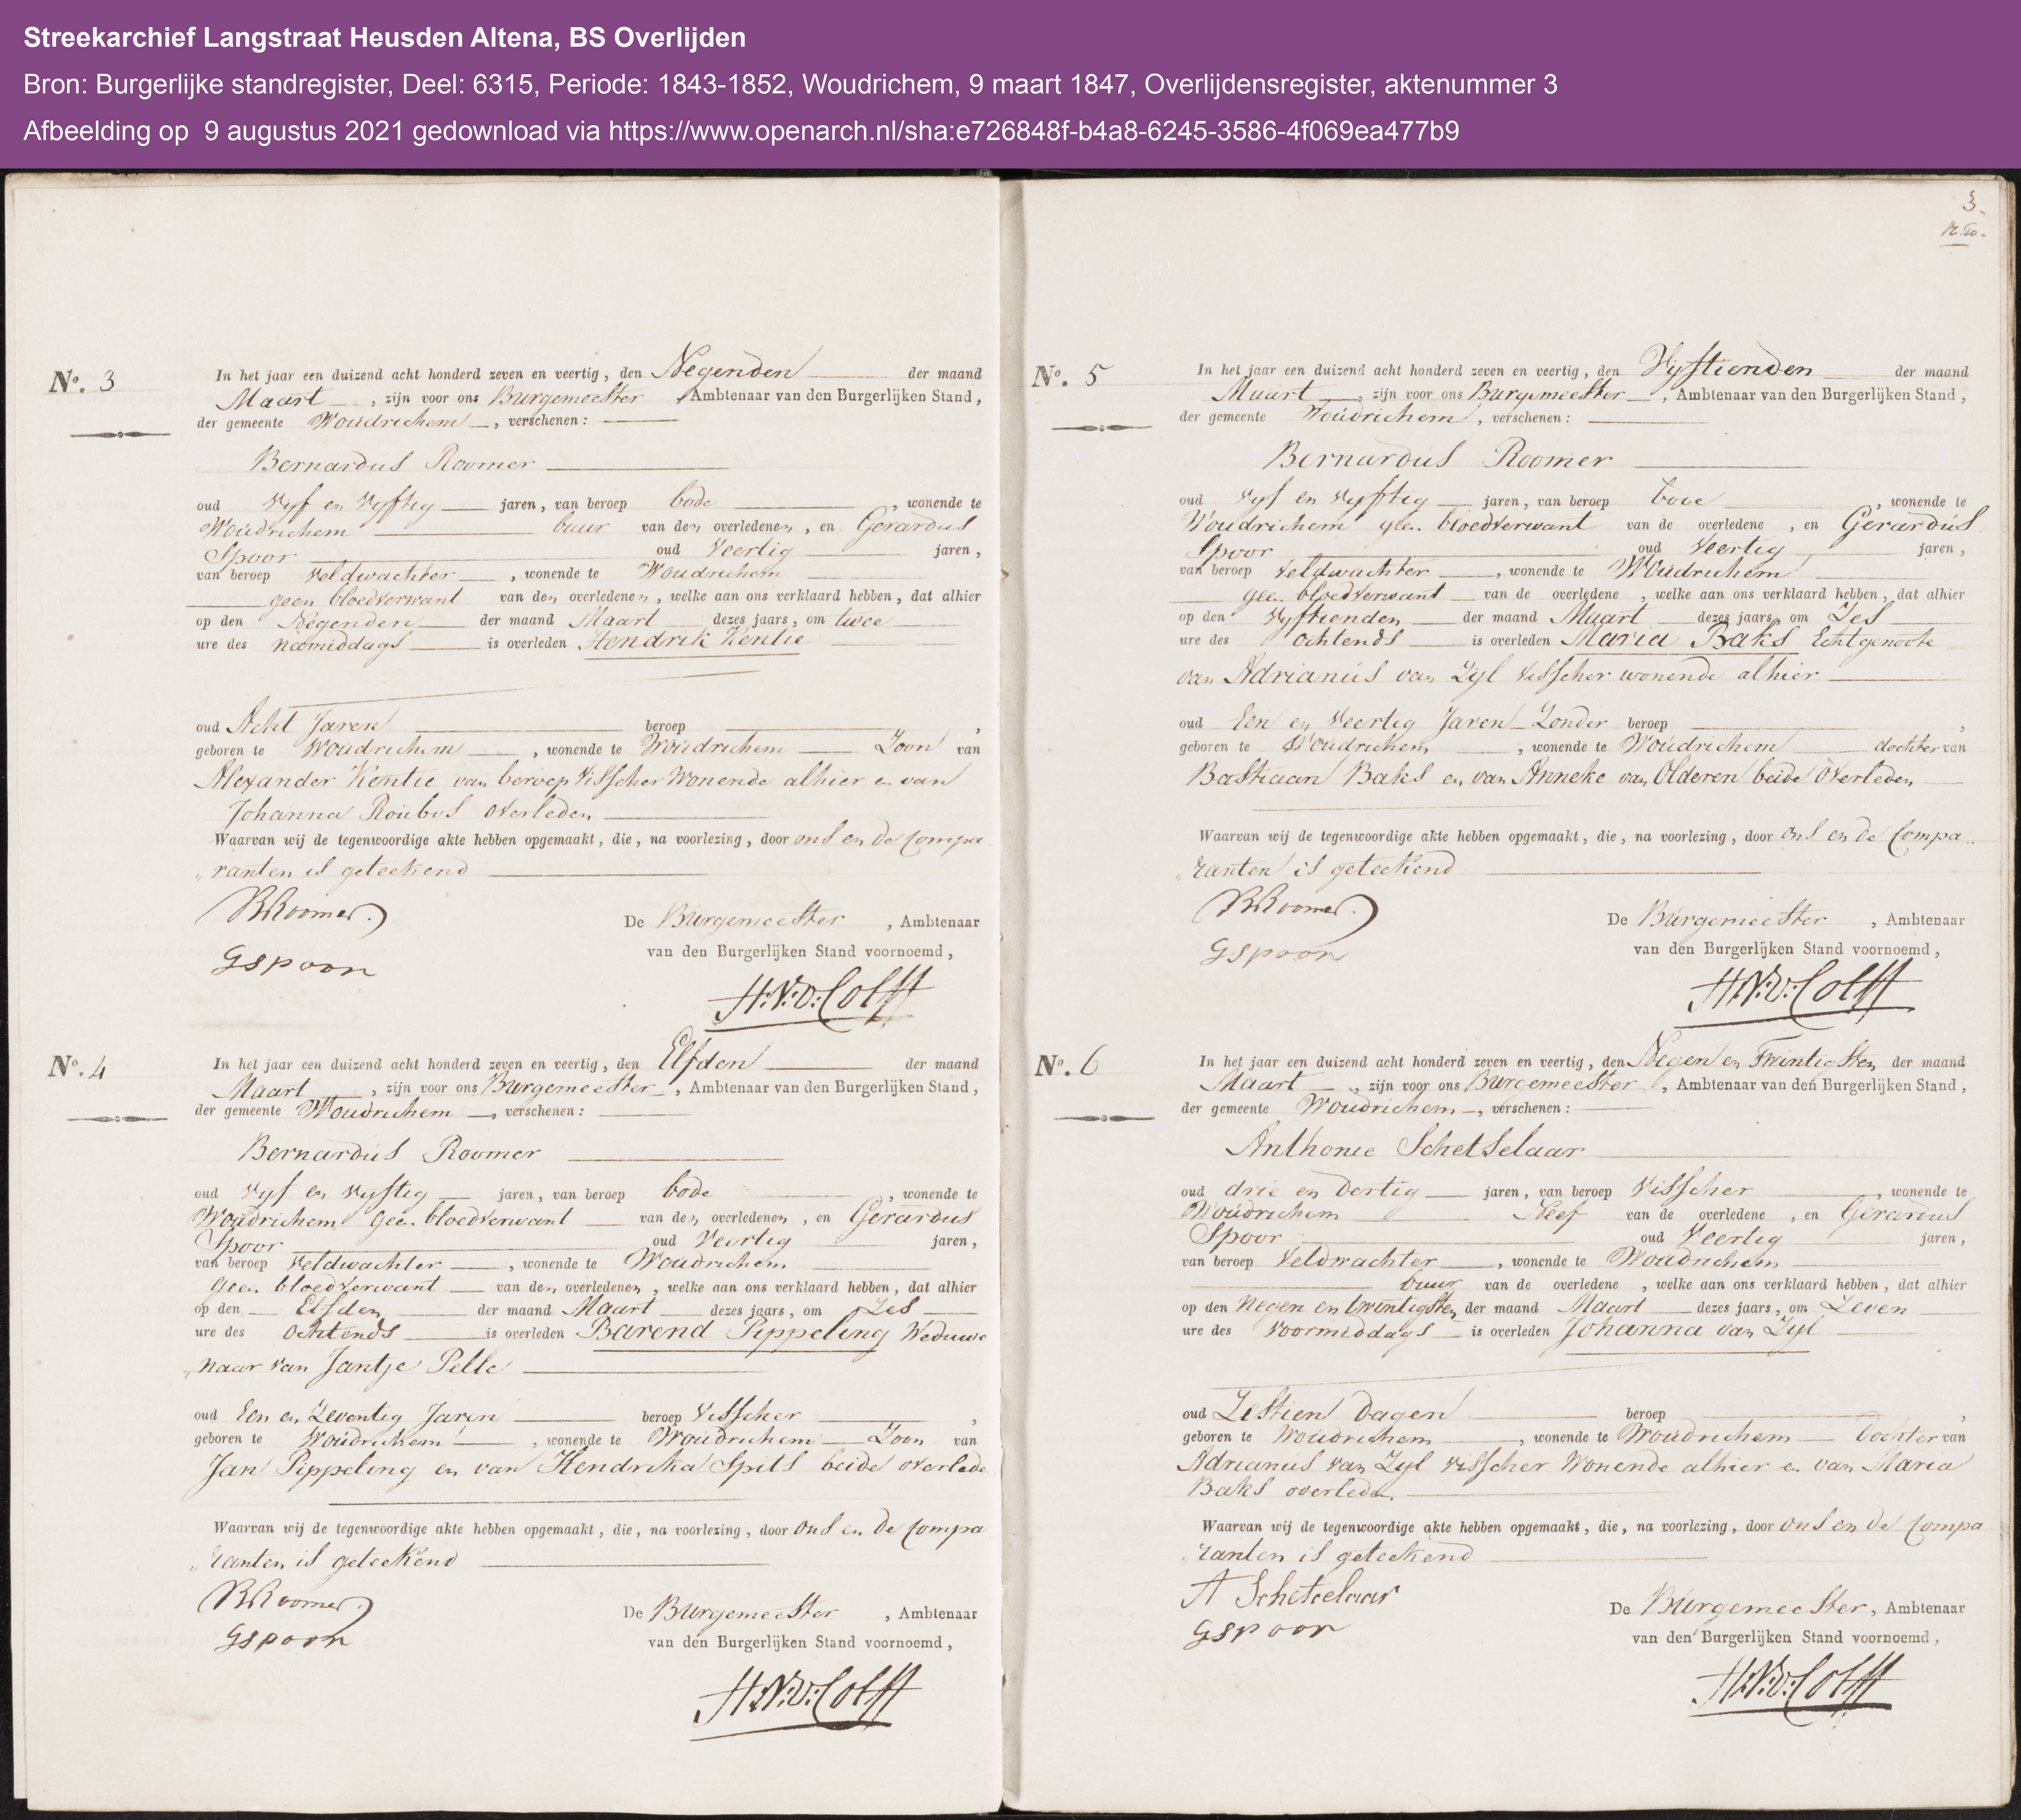 Streekarchief Langstraat Heusden Altena, BS Overlijden
Bron: Burgerlijke standregister, Deel: 6315, Periode: 1843-1852, Woudrichem, 9 maart 1847, Overlijdensregister, aktenummer 3
Afbeelding op 9 augustus 2021 gedownload via https://www.openarch.nl/sha:e726848f-b4a8-6245-3586-4f069ea477b9
No. 3
In het jaar een duizend acht honderd zeven en veertig, den Negenden der maand
Maart, zijn voor ons Burgemeester Ambtenaar van den Burgerlijken Stand,
der gemeente Woudrichem, verschenen:
Bernardus Roomer
oud Vyf en Vyftig jaren, van beroep bode, wonende te
Woudrichem buur van den overledenen, en Gerardus
Spoor oud Veertig jaren,
van beroep Veldwachter, wonende te Woudrichem
geen bloedverwant van den overledenen, welke aan ons verklaard hebben, dat alhier
op den Negenden der maand Maart dezes jaars, om twee
ure des namiddags is overleden Hendrik Kentie
oud Acht Jaren beroep ,
geboren te Woudrichem, wonende te Woudrichem Zoon van
Alexander Kentie van beroep Visscher Wonende alhier en van
Johanna Roubos overleden
Waarvan wij de tegenwoordige akte hebben opgemaakt, die, na voorlezing, door ons en de Compa
„ranten is geteekend
BRoomer.
De Burgemeester, Ambtenaar
van den Burgerlijken Stand voornoemd,
GSpoor
H.N.v.Colff
No. 4
In het jaar een duizend acht honderd zeven en veertig, den Elfden der maand
Maart, zijn voor ons Burgemeester, Ambtenaar van den Burgerlijken Stand,
der gemeente Woudrichem, verschenen:
Bernardus Roomer
oud Vyf en Vyftig jaren, van beroep bode, wonende te
Woudrichem geen bloedverwant van den overledenen, en Gerardus
Spoor oud Veertig jaren,
van beroep Veldwachter, wonende te Woudrichem
geen bloedverwant van den overledenen, welke aan ons verklaard hebben, dat alhier
op den Elfden der maand Maart dezes jaars, om Zes
ure des ochtends is overleden Barend Pippeling Weduwe
„naar van Jantje Pelle
oud Een en Zeventig Jaren beroep Visscher ,
geboren te Woudrichem, wonende te Woudrichem Zoon van
Jan Pippeling en van Hendrika Spits beide overlede
Waarvan wij de tegenwoordige akte hebben opgemaakt, die, na voorlezing, door ons en de Compa
„ranten is geteekend
BRoomer
De Burgemeester, Ambtenaar
GSpoor
van den Burgerlijken Stand voornoemd,
H.N.v.Colff
3.
No. 5
In het jaar een duizend acht honderd zeven en veertig, den Vyftienden der maand
Maart, zijn voor ons Burgemeester, Ambtenaar van den Burgerlijken Stand,
der gemeente Woudrichem, verschenen:
Bernardus Roomer
oud Vyf en Vyftig jaren, van beroep bode, wonende te
Woudrichem geen bloedverwant van de overledene, en Gerardus
Spoor oud Veertig jaren,
van beroep Veldwachter, wonende te Woudrichem
geen bloedverwant van de overledene, welke aan ons verklaard hebben, dat alhier
op den Vyftienden der maand Maart dezes jaars, om Zes
ure des ochtends is overleden Maria Baks Echtgenoote
van Adrianus van Zyl Visscher wonende alhier
oud Een en Veertig Jaren Zonder beroep ,
geboren te Woudrichem, wonende te Woudrichem dochter van
Bastiaan Baks en van Anneke van Olderen beide overleden
Waarvan wij de tegenwoordige akte hebben opgemaakt, die, na voorlezing, door ons en de Compa„
„ranten is geteekend
BRoomer.
De Burgemeester, Ambtenaar
van den Burgerlijken Stand voornoemd,
GSpoor
H.N.v.Colff
No. 6
In het jaar een duizend acht honderd zeven en veertig, den Negen en Twintigsten der maand
Maart, zijn voor ons Burgemeester, Ambtenaar van den Burgerlijken Stand,
der gemeente Woudrichem, verschenen:
Anthonie Schetselaar
oud drie en Dertig jaren, van beroep Visscher, wonende te
Woudrichem Neef van de overledene, en Gerardus
Spoor oud Veertig jaren,
van beroep Veldwachter, wonende te Woudrichem
buur van de overledene, welke aan ons verklaard hebben, dat alhier
op den Negen en twintigsten der maand Maart dezes jaars, om Zeven
ure des Voormiddags is overleden Johanna van Zyl
oud Zestien Dagen beroep ,
geboren te Woudrichem, wonende te Woudrichem Dochter van
Adrianus van Zyl Visscher Wonende alhier en van Maria
Baks overleden
Waarvan wij de tegenwoordige akte hebben opgemaakt, die, na voorlezing, door ons en de Compa
„ranten is geteekend
A Schetselaar
De Burgemeester, Ambtenaar
GSpoor
van den Burgerlijken Stand voornoemd,
H.N.v.Colff